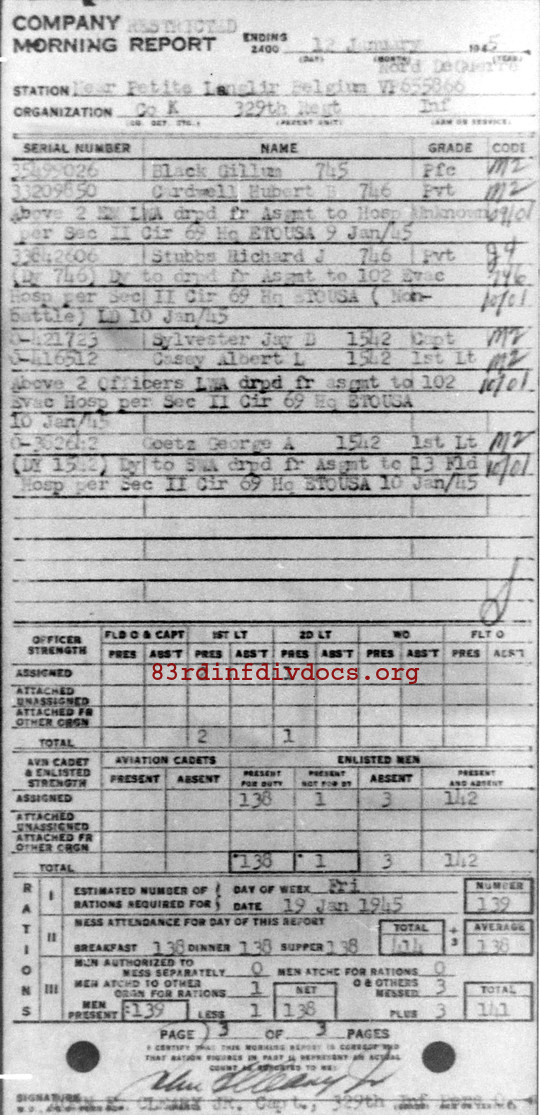 COMPANY RESTRICTED
MORNING REPORT ENDING 2400 12 January 1945
(DAY) (MONTH) (YEAR)
Nord DeGuerre
STATION Near Petite Langlir Belgium VP655866
ORGANIZATION Co K 329th Regt Inf
(PARENT UNIT) (ARM OR SERVICE)
SERIAL NUMBER NAME GRADE CODE
35499026 Black Gillum 745 Pfc M2
33209850 Cardwell Hubert B 746 Pvt M2
Above 2 EM LWA drpd fr Asgmt to Hosp Unknown
per Sec II Cir 69 Hq ETOUSA 9 Jan/45
33642606 Stubbs Richard J 746 Pvt
(Dy 746) Dy to drpd fr Asgmt to 102 Evac 746
Hosp per Sec II Cir 69 Hq ETOUSA ( Non-
battle) LD 10 Jan/45
O-421723 Sylvester Jay D 1542 Capt M2
O-416512 Casey Albert L 1542 1st Lt M2
Above 2 Officers LWA drpd fr asgmt to 102
Evac Hosp per Sec II Cir 69 Hq ETOUSA
10 Jan/45
Goetz George A 1542 1st Lt M2
(DY 1542) Dy to SWA drpd fr Asgmt to 13 Fld
Hosp per Sec II Cir 69 Hq ETOUSA 10 Jan/45
OFFICER STRENGTH FLD O & CAPT 1ST LT 2D LT WO FLT O
PRES ABS'T PRES ABS'T PRES ABS'T PRES ABS'T PRES ABS'T
ASSIGNED
83rdinfdivdocs.org
ATTACHED UNASSIGNED
ATTACHED FR OTHER ORGN
TOTAL 2 1
AVN CADET & ENLISTED STRENGTH AVIATION CADETS ENLISTED MEN
PRESENT ABSENT PRESENT FOR DUTY PRESENT NOT FOR DY ABSENT PRESENT AND ABSENT
ASSIGNED 138 1 3 142
ATTACHED UNASSIGNED
ATTACHED FR OTHER ORGN
TOTAL 138 1 3 142
RATIONS
I ESTIMATED NUMBER OF RATIONS REQUIRED FOR DAY OF WEEK Fri NUMBER
DATE 19 Jan 1945 139
II MESS ATTENDANCE FOR DAY OF THIS REPORT TOTAL ÷ 3 AVERAGE
BREAKFAST 138 DINNER 138 SUPPER 138 414 138
III MEN AUTHORIZED TO MESS SEPARATELY 0 MEN ATCHD FOR RATIONS 0
MEN ATCHD TO OTHER ORGN FOR RATIONS 1 NET O & OTHERS MESSED 3 TOTAL
MEN PRESENT 139 LESS 1 138 PLUS 3 141
PAGE 3 OF 3 PAGES
I CERTIFY THAT THIS MORNING REPORT IS CORRECT AND
THAT RATION FIGURES IN PART II REPRESENT AN ACTUAL
COUNT AS REPORTED TO ME:
SIGNATURE JOHN F. CLEARY JR. Capt., 329th Inf Pers O.